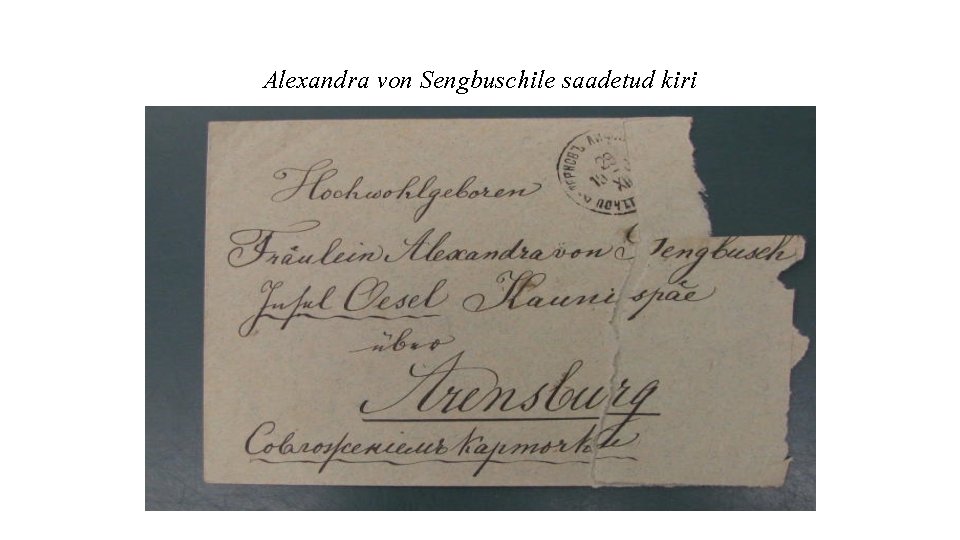 Alexandra von Sengbuschile saadetud kiri
Hochwohlgeboren
Fräulein Alexandra von Sengbusch
Insel Oesel Kaunispäe
über
Arensburg
Совложенiемъ карточки